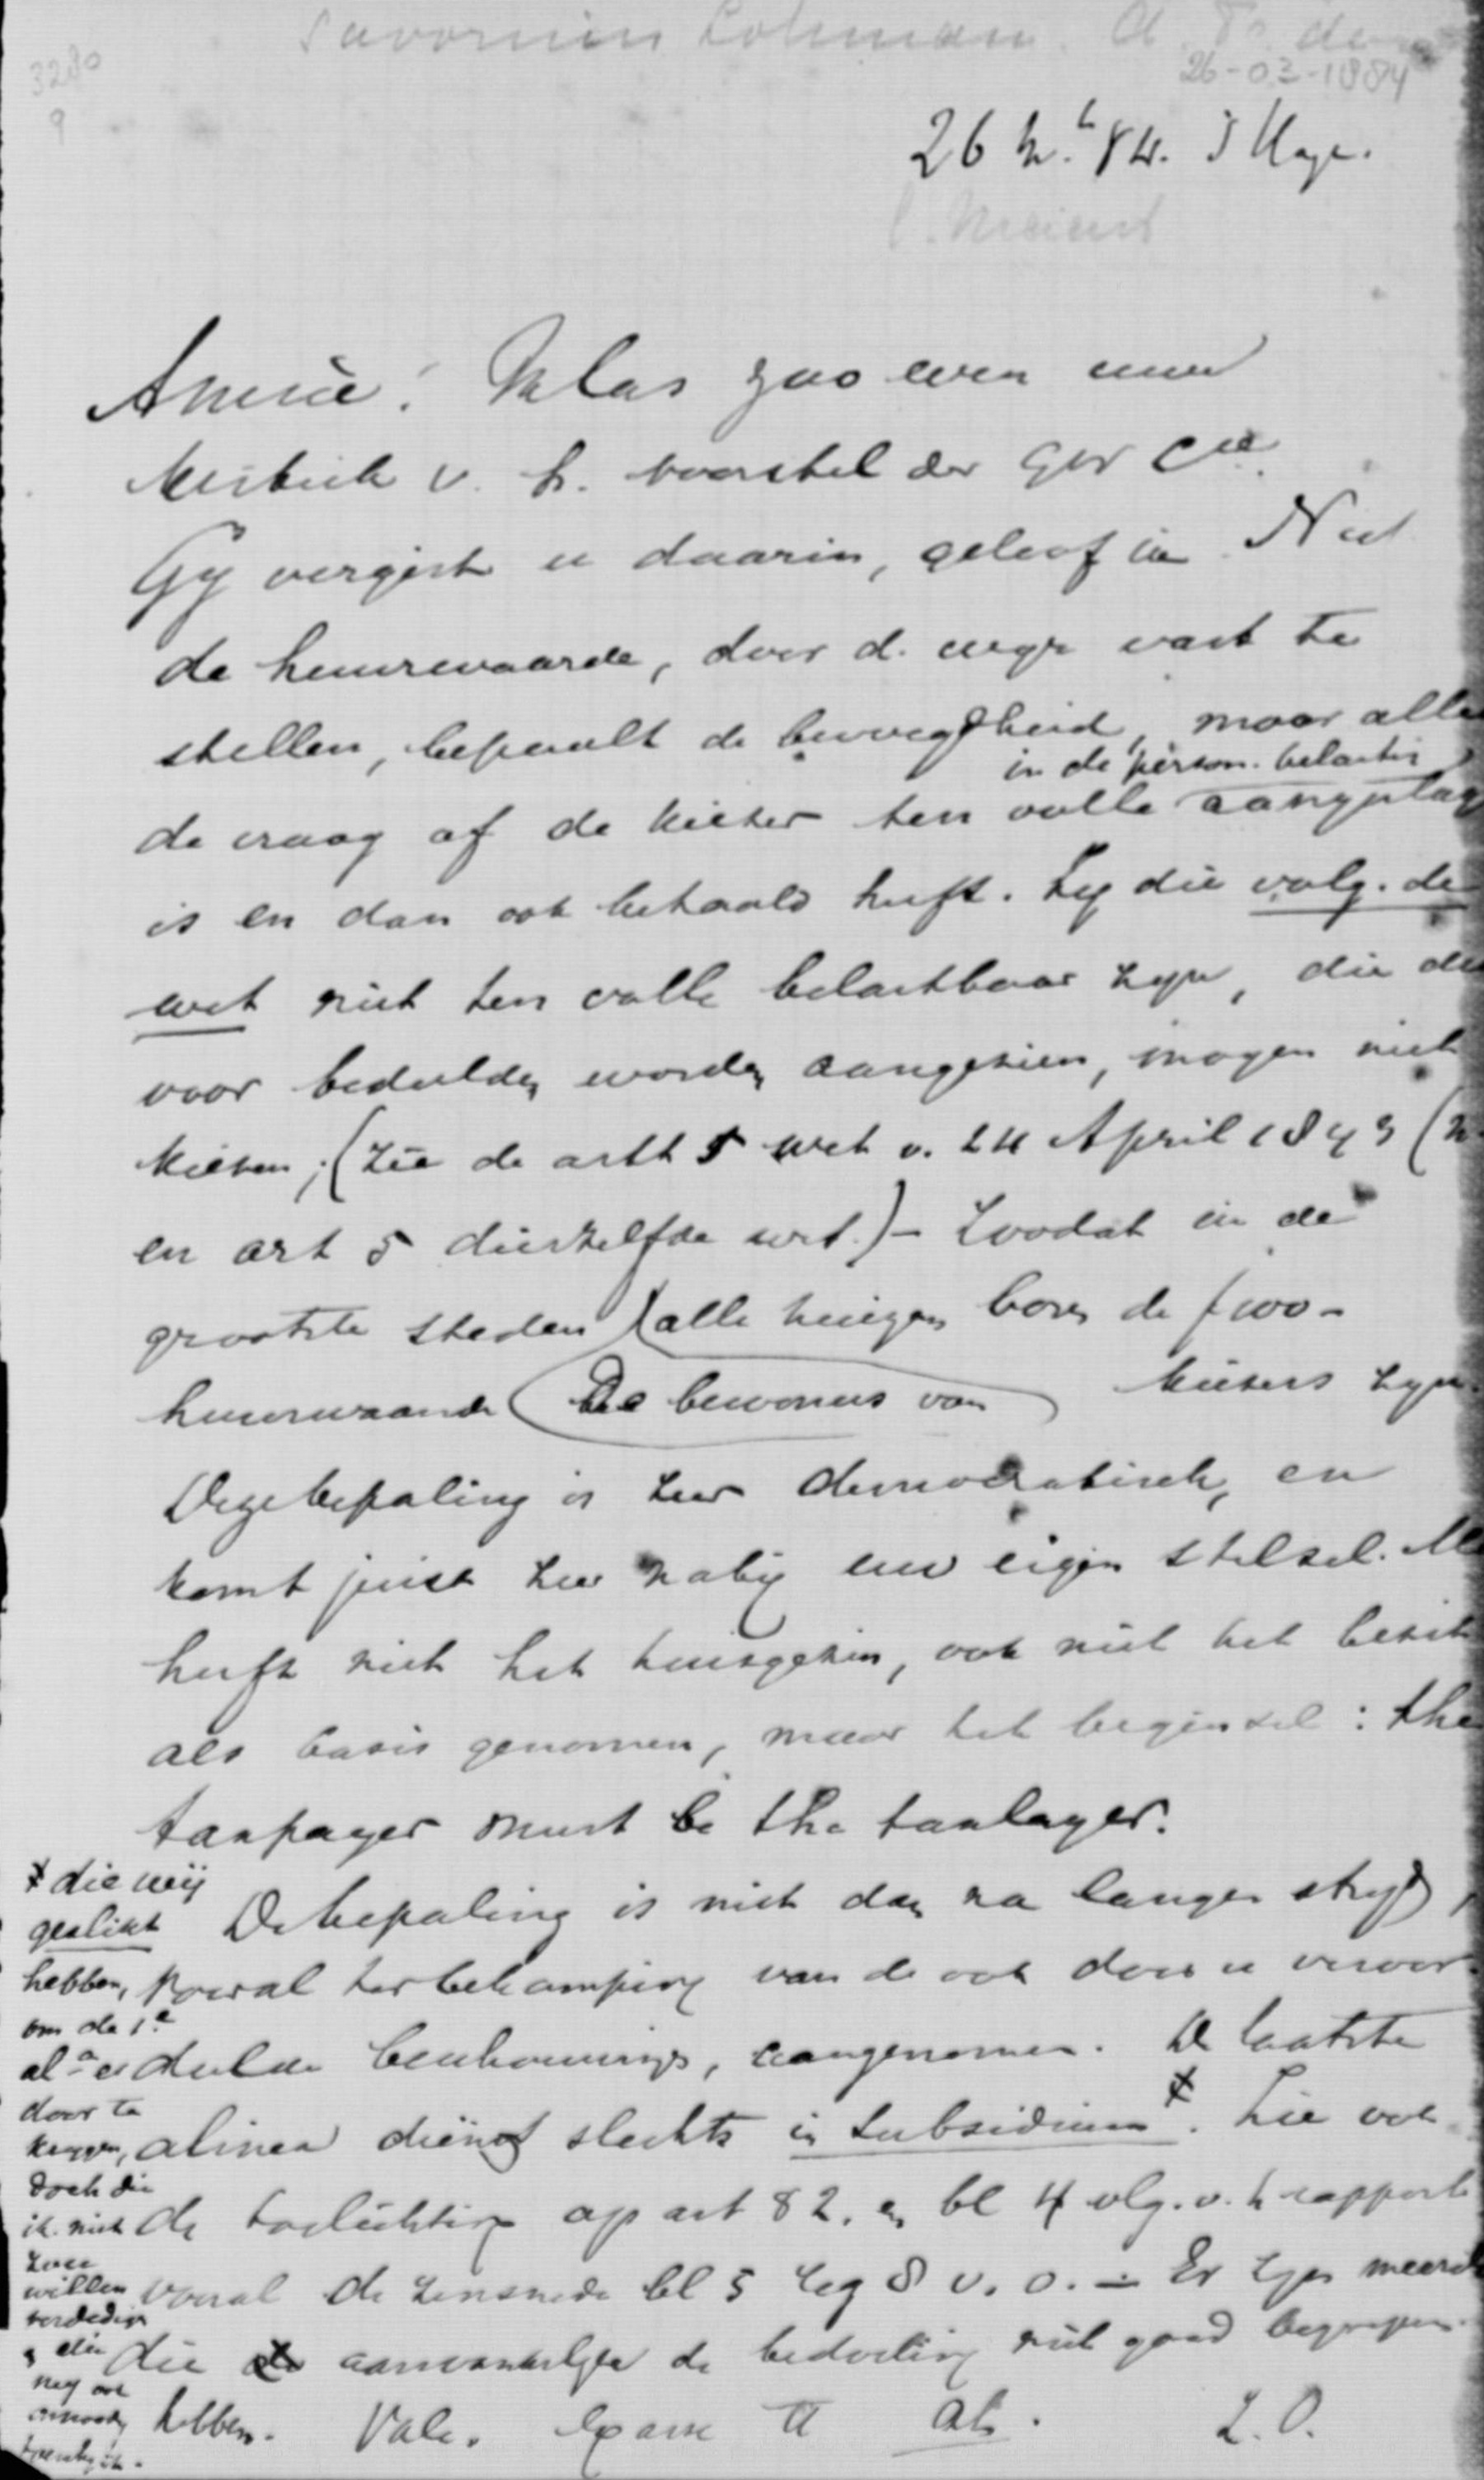 Savornin Lohman. A. F. de
3280
9
26-03-1884
26 M.t 84. 's Hage.
Amice! Ik las zoo even uw
kritiek v. h. voorstel der Gw Cie.
Gy vergist u daarin, geloof ik. Niet
de huurwaarde, door d. wetgr vast te
stellen, bepaalt de bevoegdheid, maar alleen
in de person. belasting
de vraag of de kiezer ten volle aangeslagen
is en dan ook betaald heeft. Zij die volg. de
wet niet ten volle belastbaar zyn, die dus
voor bedeelden worden aangezien, mogen niet
kiezen; (zie de artt 5 wet v. 24 April 1843
en art 5 diezelfde wet.) - Zoodat in de
grootste steden (alle huizen boven de f 100-
huurwaarde (De bewoners van) kiezers zyn.
Deze bepaling is zeer democratisch, en
komt juist zeer naby uw eigen stelsel. Men
heeft niet het huisgezin, ook niet het bezit
als basis genomen, maar het beginsel: the
taxpayer must be the taxlayer.
De bepaling is niet dan na langen stryd,
vooral ter bekamping van de ook door u veroor-
deelde beschouwing, aangenomen. De laatste
alinea dient slechts in subsidium ‡. Zie ook
de toelichting op art 82. en bl 4 vlg. v. h rapport
vooral de zinsnede bl 5 reg 8 v. o. - Er zyn meerdere
die aanvankelyk de bedoeling niet goed begrepen
hebben. Vale. t. at. L. O.
‡ die wij
geslikt
hebben,
om de 1e
al.a er
door te
krygen,
doch die
ik niet
zou
willen
verdedigen
die
nog ook